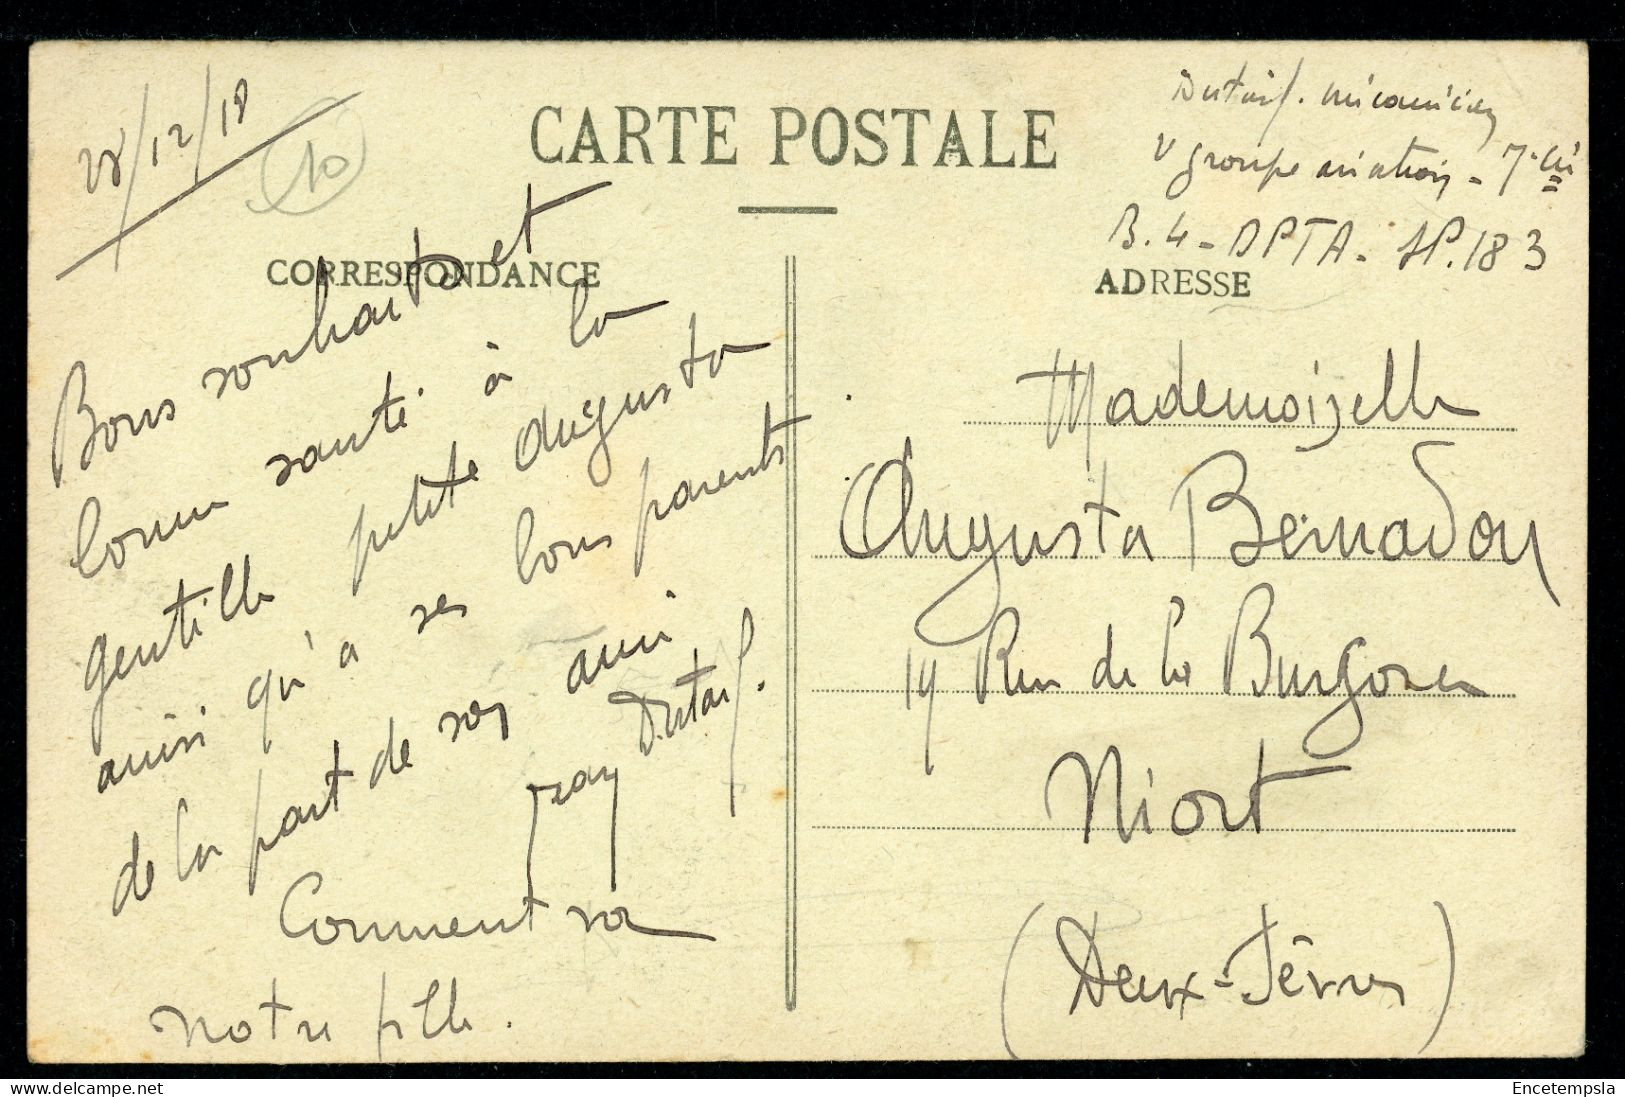 28/12/18
10
CARTE POSTALE
CORRESPONDANCE
Bons souhaits et
bonne santé à la
gentille petite Augusta
ainsi qu'à ses bons parents
de la part de son ami
Jean
Comment va
notre fille.
mécanicien
V groupe aviation - 7. Cie
B. 4 - DPTA - SP. 183
ADRESSE
Mademoiselle
Augusta Bernadou
19 Rue de la Burgonce
Niort
(Deux-Sèvres)
Encetempsla